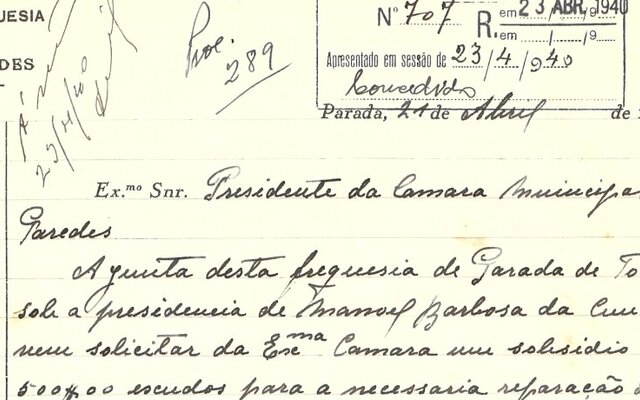 UESIA
DES
Proc.
289
Nº 707 R. em 23 ABR. 1940
em / /9
Apresentado em sessão de 23/4/940
Concedido
Parada, 21 de Abril de
Ex.mo Snr. Presidente da Camara Municipa
Paredes
A junta desta freguesia de Parada de To
sob a presidencia de Manoel Barbosa da Cun
vem solicitar da Exma Camara um subsidio
500$00 escudos para a necessaria reparação